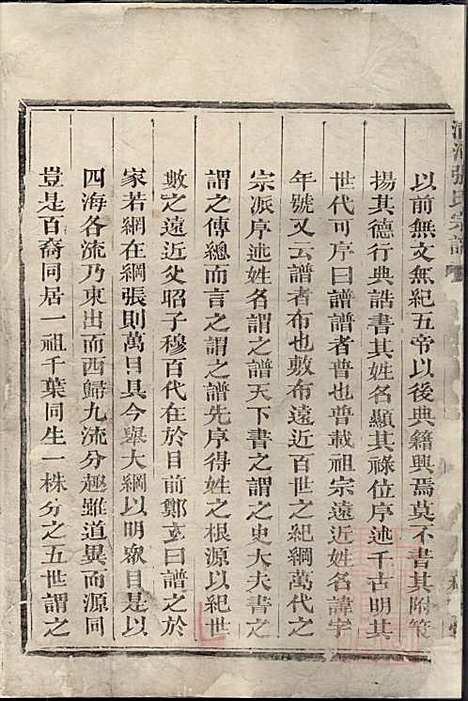 清河張氏宗譜
以前無文無紀五帝以後典籍興焉莫不書其附策
揚其德行典誥書其姓名顯其祿位序述千古明其
世代可序曰譜譜者普也普載祖宗遠近姓名諱字
年號又云譜者布也敷布遠近百世之紀綱萬代之
宗派序述姓名謂之譜天下書之謂之史大夫書之
謂之傳總而言之謂之譜先序得姓之根源以紀世
數之遠近父昭子穆百代在於目前鄭玄曰譜之於
家若網在綱張則萬目具今舉大綱以明眾目是以
四海各流乃東出而西歸九流分趨雖道異而源同
豈是百裔同居一祖千葉同生一株分之五世謂之